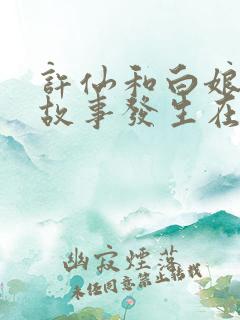 許仙和白娘
故事發生在
幽寂煙落
未經同意禁止轉載